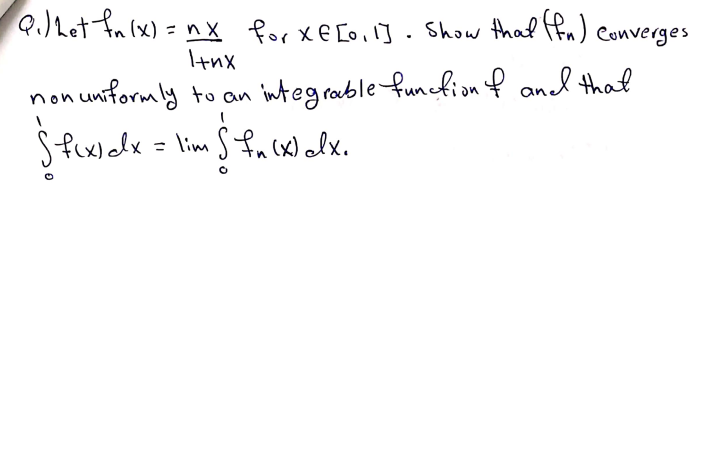 Q.) Let fn(x) = nx/1+nx for x∈[0,1]. Show that (fn) converges
nonuniformly to an integrable function f and that
∫₀¹ f(x) dx = lim ∫₀¹ fn(x) dx.